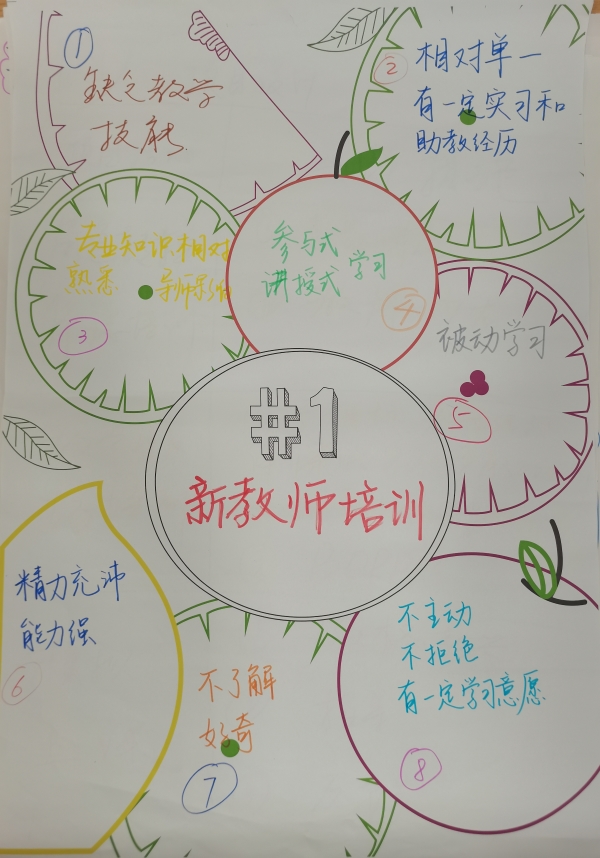 ①
缺乏教学
技能
②
相对单一
有一定实习和
助教经历
③
专业知识相对
熟悉
参与式
讲授式 学习
④
被动学习
⑤
#1
新教师培训
精力充沛
能力强
⑥
不了解
好奇
⑦
不主动
不拒绝
有一定学习意愿
⑧